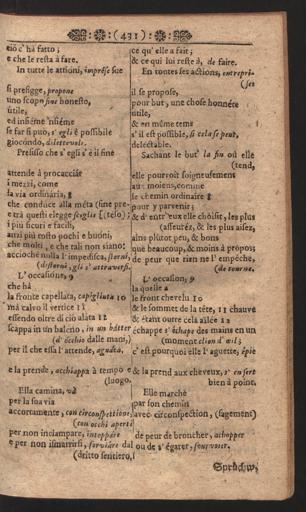 (431)
ciò c'hà fatto;
e che le resta à fare.
In tutte le attioni, imprése sue
si prefigge, propone
uno scopo fine honesto,
utile,
ed insiéme 'nsiéme
se far si può, s' egli è possibile
giocóndo, dilettevole.
Prefisso che s'egli s'è il fine
attende à procacciáre
i mezzi, come
la via ordinaria, 8
che conduce alla méta (fine pre-
e trà questi elegge sceglie [(fisso);
i piu sicuri e facili,
anzi più tosto pochi e buoni,
che molti, e che tali non siano:
acciochè nulla l'impedisca, storni,
(distorni, gli s'attraversi.
L'occasióne, 9
che hà
la fronte capellata, capigliuta 10
mà calvo il vertice 11
essendo oltre di ciò alata 12
scappa in un balcno, in un bátter
(d'occhio dalle mani,)
per il che essa l'attende, aguáta,
e la prende, acchiappa à tempo e
(luogo.
Ella camina, và
per la sua via
accortamente, con circonspettione,
(con occhi aperti
per non inciampare, intoppáre
e per non ismarrirsi, forviáre dal
(dritto sentiero,
ce qu'elle a fait;
& ce qui lui reste à, de faire.
En toutes ses actions, entrepri-
(ses
il se propose,
pour but, une chose honnéte
utile,
& en même tems
s'il est possible, si cela se peut,
delectable.
Sachant le but la fin où elle
(tend,
elle pourvoit soigneusement
aux moiens, comme
le chemin ordinaire 8
pour y parvenir;
& d'entr'eux elle choisit, les plus
(asseuréz, & les plus aisez,
ains plûtot peu, & bons
que beaucoup, & moins à propos;
de peur que rien ne l'empêche,
(de tourne.
L'occasion, 9
la quelle a
le front chevelu 10
& le sommet de la tête, 11 chauve
& étant outre cela ailée 12
échappe s'échape des mains en un
(moment clien d'œil;
c'est pourquoi elle l'aguette, épie
& la prend aux cheveux, s'en sert
bien à point.
Elle marche
par son chemin
avec circonspection, (sagement)
de peur de broncher, achopper
ou de s'égarer, fourvoier.
Sprüchw.